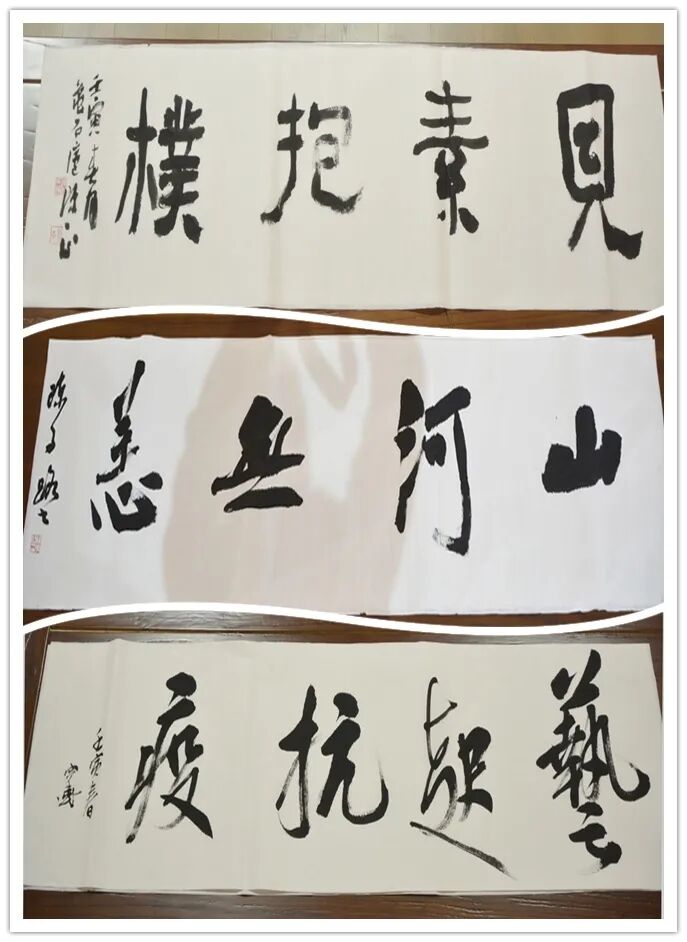 見素抱樸
壬寅春月
山河無恙
藝起抗疫
壬寅春日